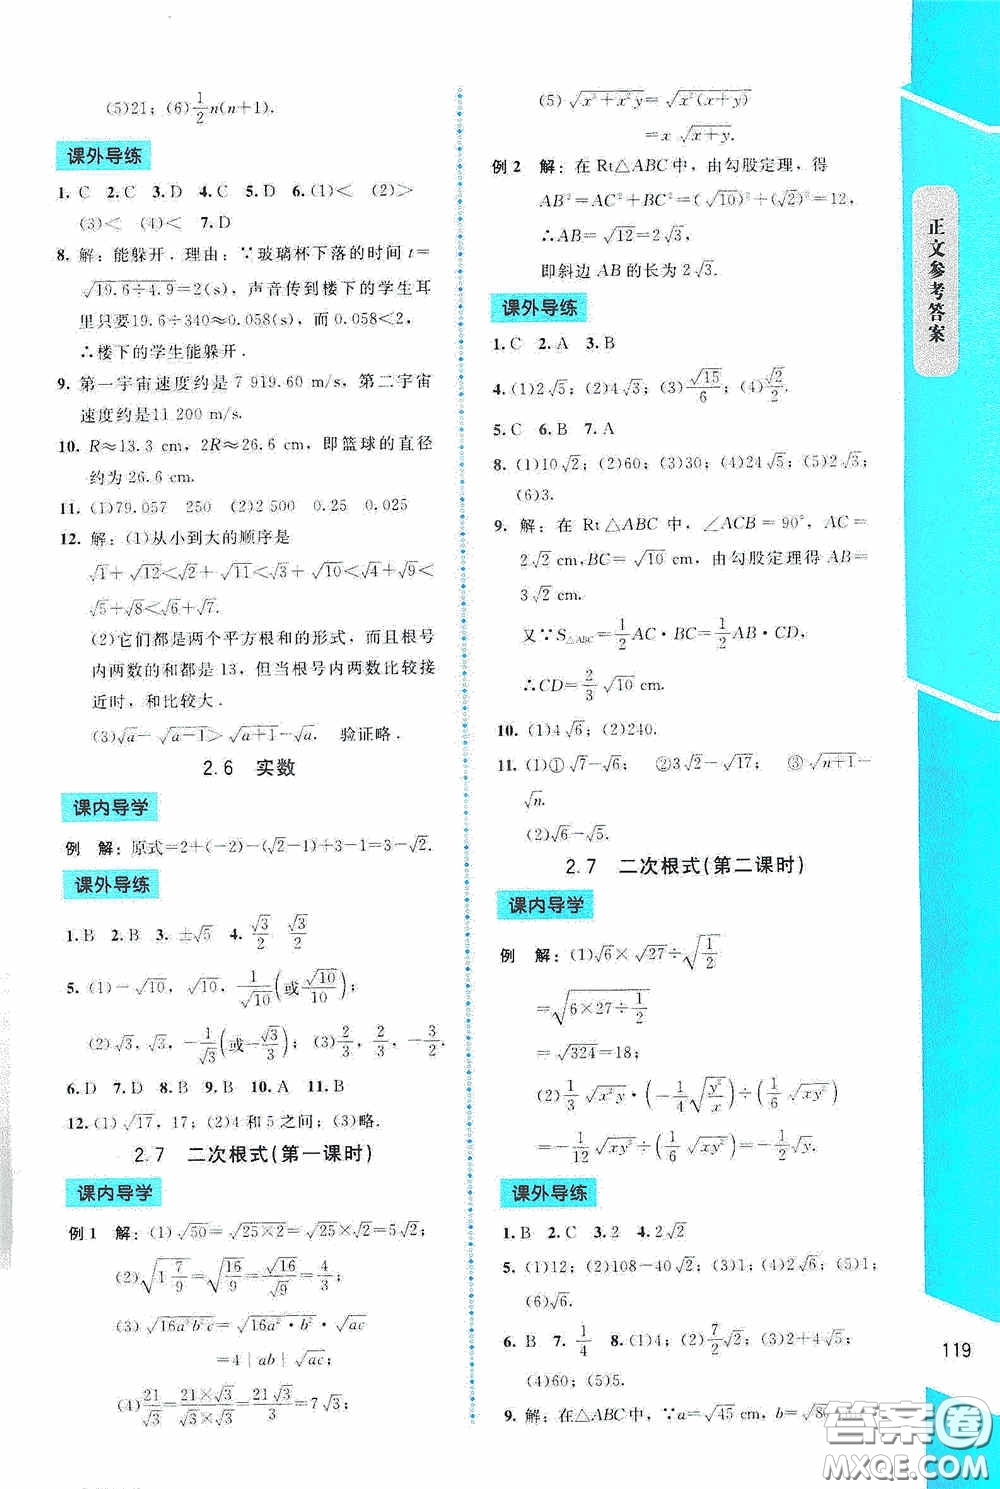 (5)21; (6)1/2 n(n+1).
课外导练
1. C 2. C 3. D 4. C 5. D 6. (1)< (2)>
(3)< (4)< 7. D
8. 解:能躲开.理由:∵玻璃杯下落的时间 t=
√19.6÷4.9=2(s),声音传到楼下的学生耳
里只要19.6÷340≈0.058(s),而 0.058<2,
∴楼下的学生能躲开.
9. 第一宇宙速度约是 7 919.60 m/s,第二宇宙
速度约是11 200 m/s.
10. R≈13.3 cm, 2R≈26.6 cm,即篮球的直径
约为 26.6 cm.
11. (1)79.057 250 (2)2 500 0.25 0.025
12. 解:(1)从小到大的顺序是
√1+√12<√2+√11<√3+√10<√4+√9<
√5+√8<√6+√7.
(2)它们都是两个平方根和的形式,而且根号
内两数的和都是 13,但当根号内两数比较接
近时,和比较大.
(3)√a-√(a-1)>√(a+1)-√a. 验证略.
2.6 实数
课内导学
例 解:原式=2+(-2)-(√2-1)+3-1=3-√2.
课外导练
1. B 2. B 3. ±√5 4. √3/2 √3/2
5. (1)-√10, √10, 1/√10(或√10/10);
(2)√3,√3,-1/√3(或-√3/3); (3)2/3, 2/3, -3/2.
6. D 7. D 8. B 9. B 10. A 11. B
12. (1)√17, 17; (2)4 和 5 之间; (3)略.
2.7 二次根式(第一课时)
课内导学
例 1 解:(1)√50=√(25×2)=√25×√2=5√2;
(2)√(1 7/9)=√(16/9)=√16/√9=4/3;
(3)√(16a²b²c)=√(16a²·b²)·√(ac)
=4|ab|√(ac);
(4)21/√3=(21×√3)/(√3×√3)=21√3/3=7√3.
(5)√(x³+x²y)=√(x²(x+y))
=x√(x+y).
例 2 解:在 Rt△ABC 中,由勾股定理,得
AB²=AC²+BC²=(√10)²+(√2)²=12,
∴AB=√12=2√3.
即斜边 AB 的长为 2√3.
课外导练
1. C 2. A 3. B
4. (1)2√5; (2)4√3; (3)√15/6; (4)√2/2.
5. C 6. B 7. A
8. (1)10√2; (2)60; (3)30; (4)24√5; (5)2√3;
(6)3.
9. 解:在 Rt△ABC 中,∠ACB=90°,AC=
2√2 cm,BC=√10 cm,由勾股定理得 AB=
3√2 cm.
又∵S△ABC=1/2 AC·BC=1/2 AB·CD,
∴CD=2/3 √10 cm.
10. (1)4√6; (2)240.
11. (1)①√7-√6; ②√8-√7; ③√(n+1)-
√n.
(2)√6-√5.
2.7 二次根式(第二课时)
课内导学
例 解:(1)√6×√27÷√(1/2)
=√(6×27÷1/2)
=√324=18;
(2)1/3 √(x²y)·(-1/4 √(y²/x))·(1/6 √(xy²))
=-1/12 √(xy³)·(1/6 √(xy²))
课外导练
1. B 2. C 3. 2 4. 2√2
5. (1)12; (2)108-40√2; (3)1; (4)2√6; (5)1;
(6)√6.
6. B 7. 1/4 8. (1)4; (2)7/2 √2; (3)2+4√5;
(4)60; (5)5.
9. 解:在△ABC 中,∵a=√45 cm, b=
正文参考答案
119
答案圈
MXQE.COM